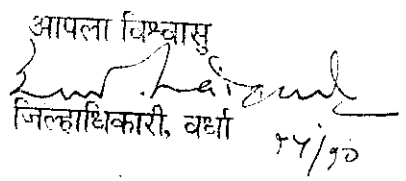 आपला विश्वासु
जिल्हाधिकारी, वर्धा
१५/१०